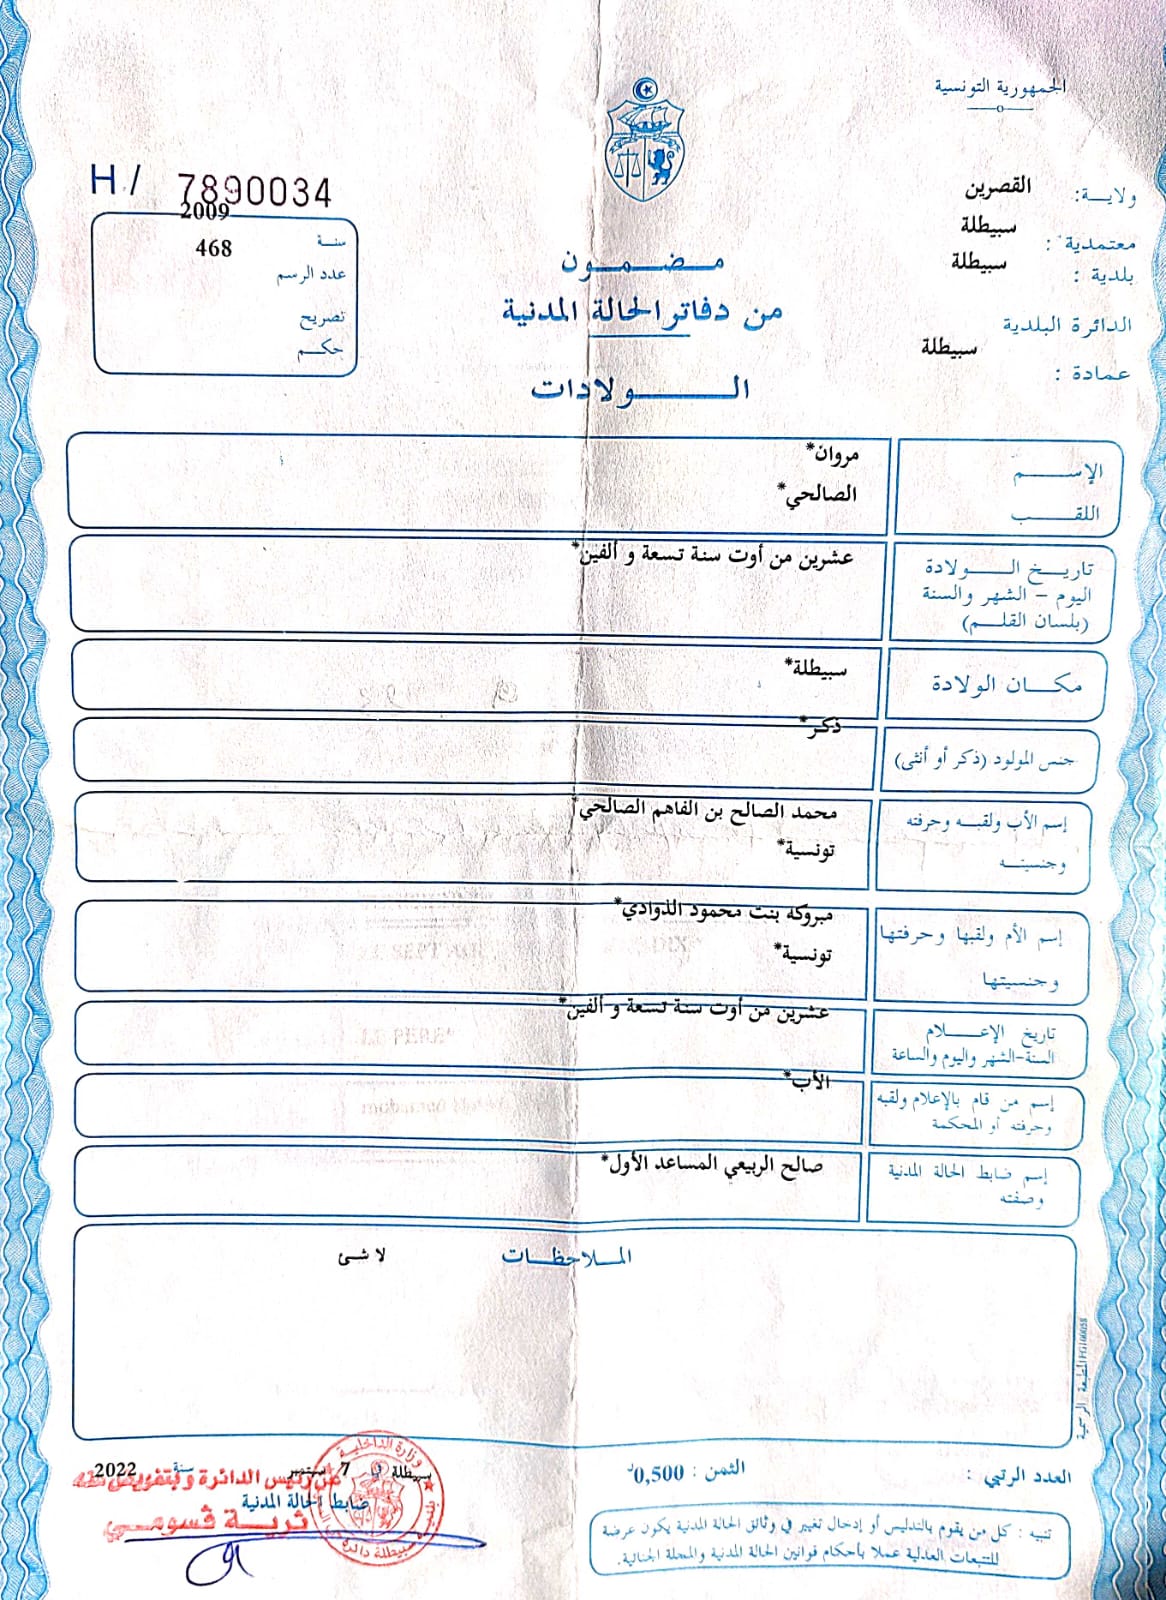 الجمهورية التونسية
ولاية: القصرين
معتمدية: سبيطلة
بلدية: سبيطلة
الدائرة البلدية
عمادة: سبيطلة
H/ 7890034
سنة 2009
عدد الرسم 468
تصريح
حكم
مضمون
من دفاتر الحالة المدنية
الولادات
الإسم مروان*
اللقب الصالحي*
تاريخ الولادة عشرين من أوت سنة تسعة و ألفين*
اليوم - الشهر والسنة
(بلسان القلم)
مكان الولادة سبيطلة*
جنس المولود (ذكر أو أنثى) ذكر*
إسم الأب ولقبه وحرفته محمد الصالح بن الفاهم الصالحي*
وجنسيته تونسية*
إسم الأم ولقبها وحرفتها مبروكه بنت محمود الذوادي*
وجنسيتها تونسية*
تاريخ الإعلام عشرين من أوت سنة تسعة و ألفين*
السنة-الشهر واليوم والساعة
إسم من قام بالإعلام ولقبه الأب*
وحرفته أو المحكمة
إسم ضابط الحالة المدنية صالح الربيعي المساعد الأول*
وصفته
الملاحظات لا شئ
المطبعة الرسمية
العدد الرتبي :
الثمن : 0,500د
بسبيطلة في 7 سبتمبر سنة 2022
عن رئيس الدائرة وبتفويض منه
ضابط الحالة المدنية
ثرية قسومي
وزارة الداخلية
سبيطلة دائرة
تنبيه : كل من يقوم بالتدليس أو إدخال تغيير في وثائق الحالة المدنية يكون عرضة
للتتبعات العدلية عملا بأحكام قوانين الحالة المدنية والمجلة الجنائية.